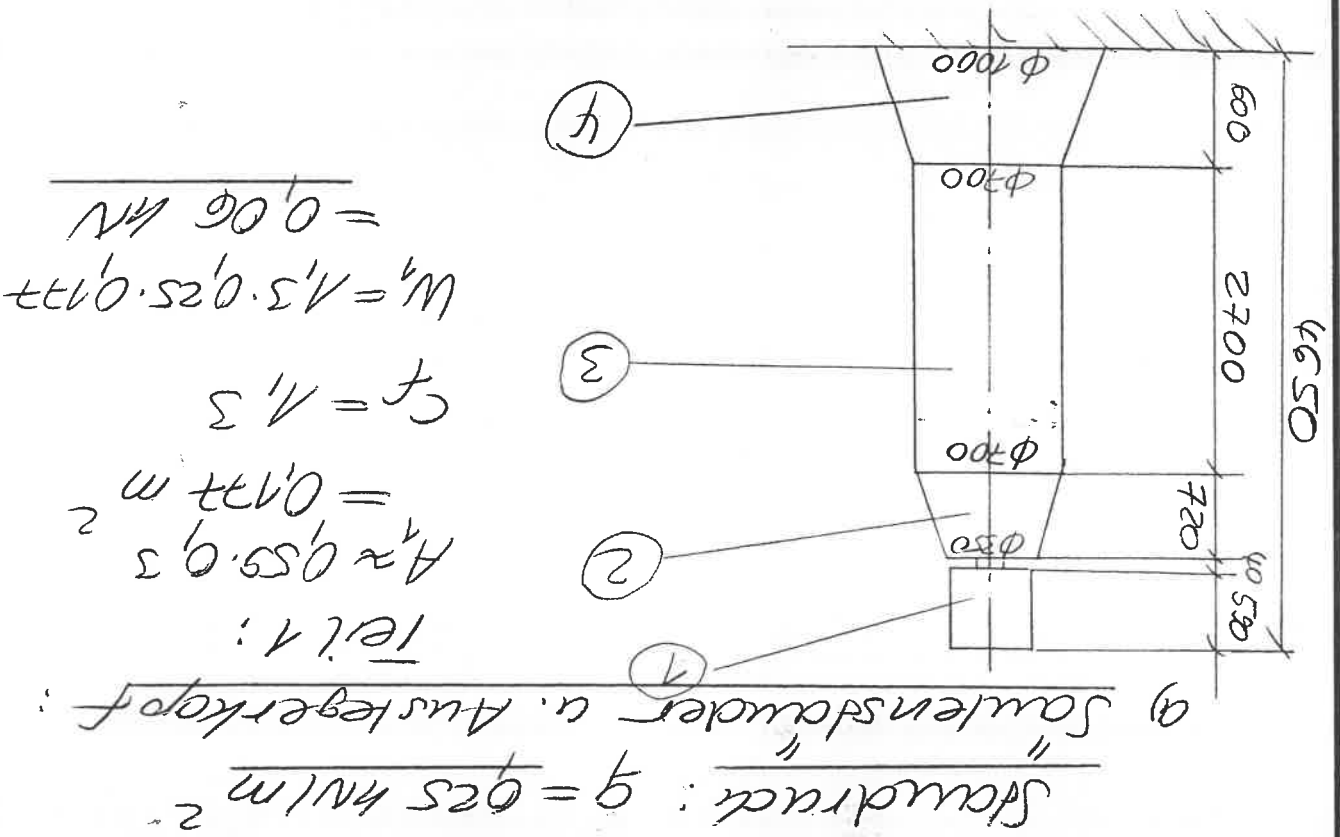 Staudruck: q = 0,25 kN/m²
a) Säulenständer u. Auslegerkopf:
Teil 1:
A₁ ≈ 0,59·0,3
= 0,177 m²
cf = 1,3
W₁ = 1,3·0,25·0,177
= 0,06 kN
1
2
3
4
590
40
720
2700
600
4650
Φ350
Φ700
Φ700
Φ1000